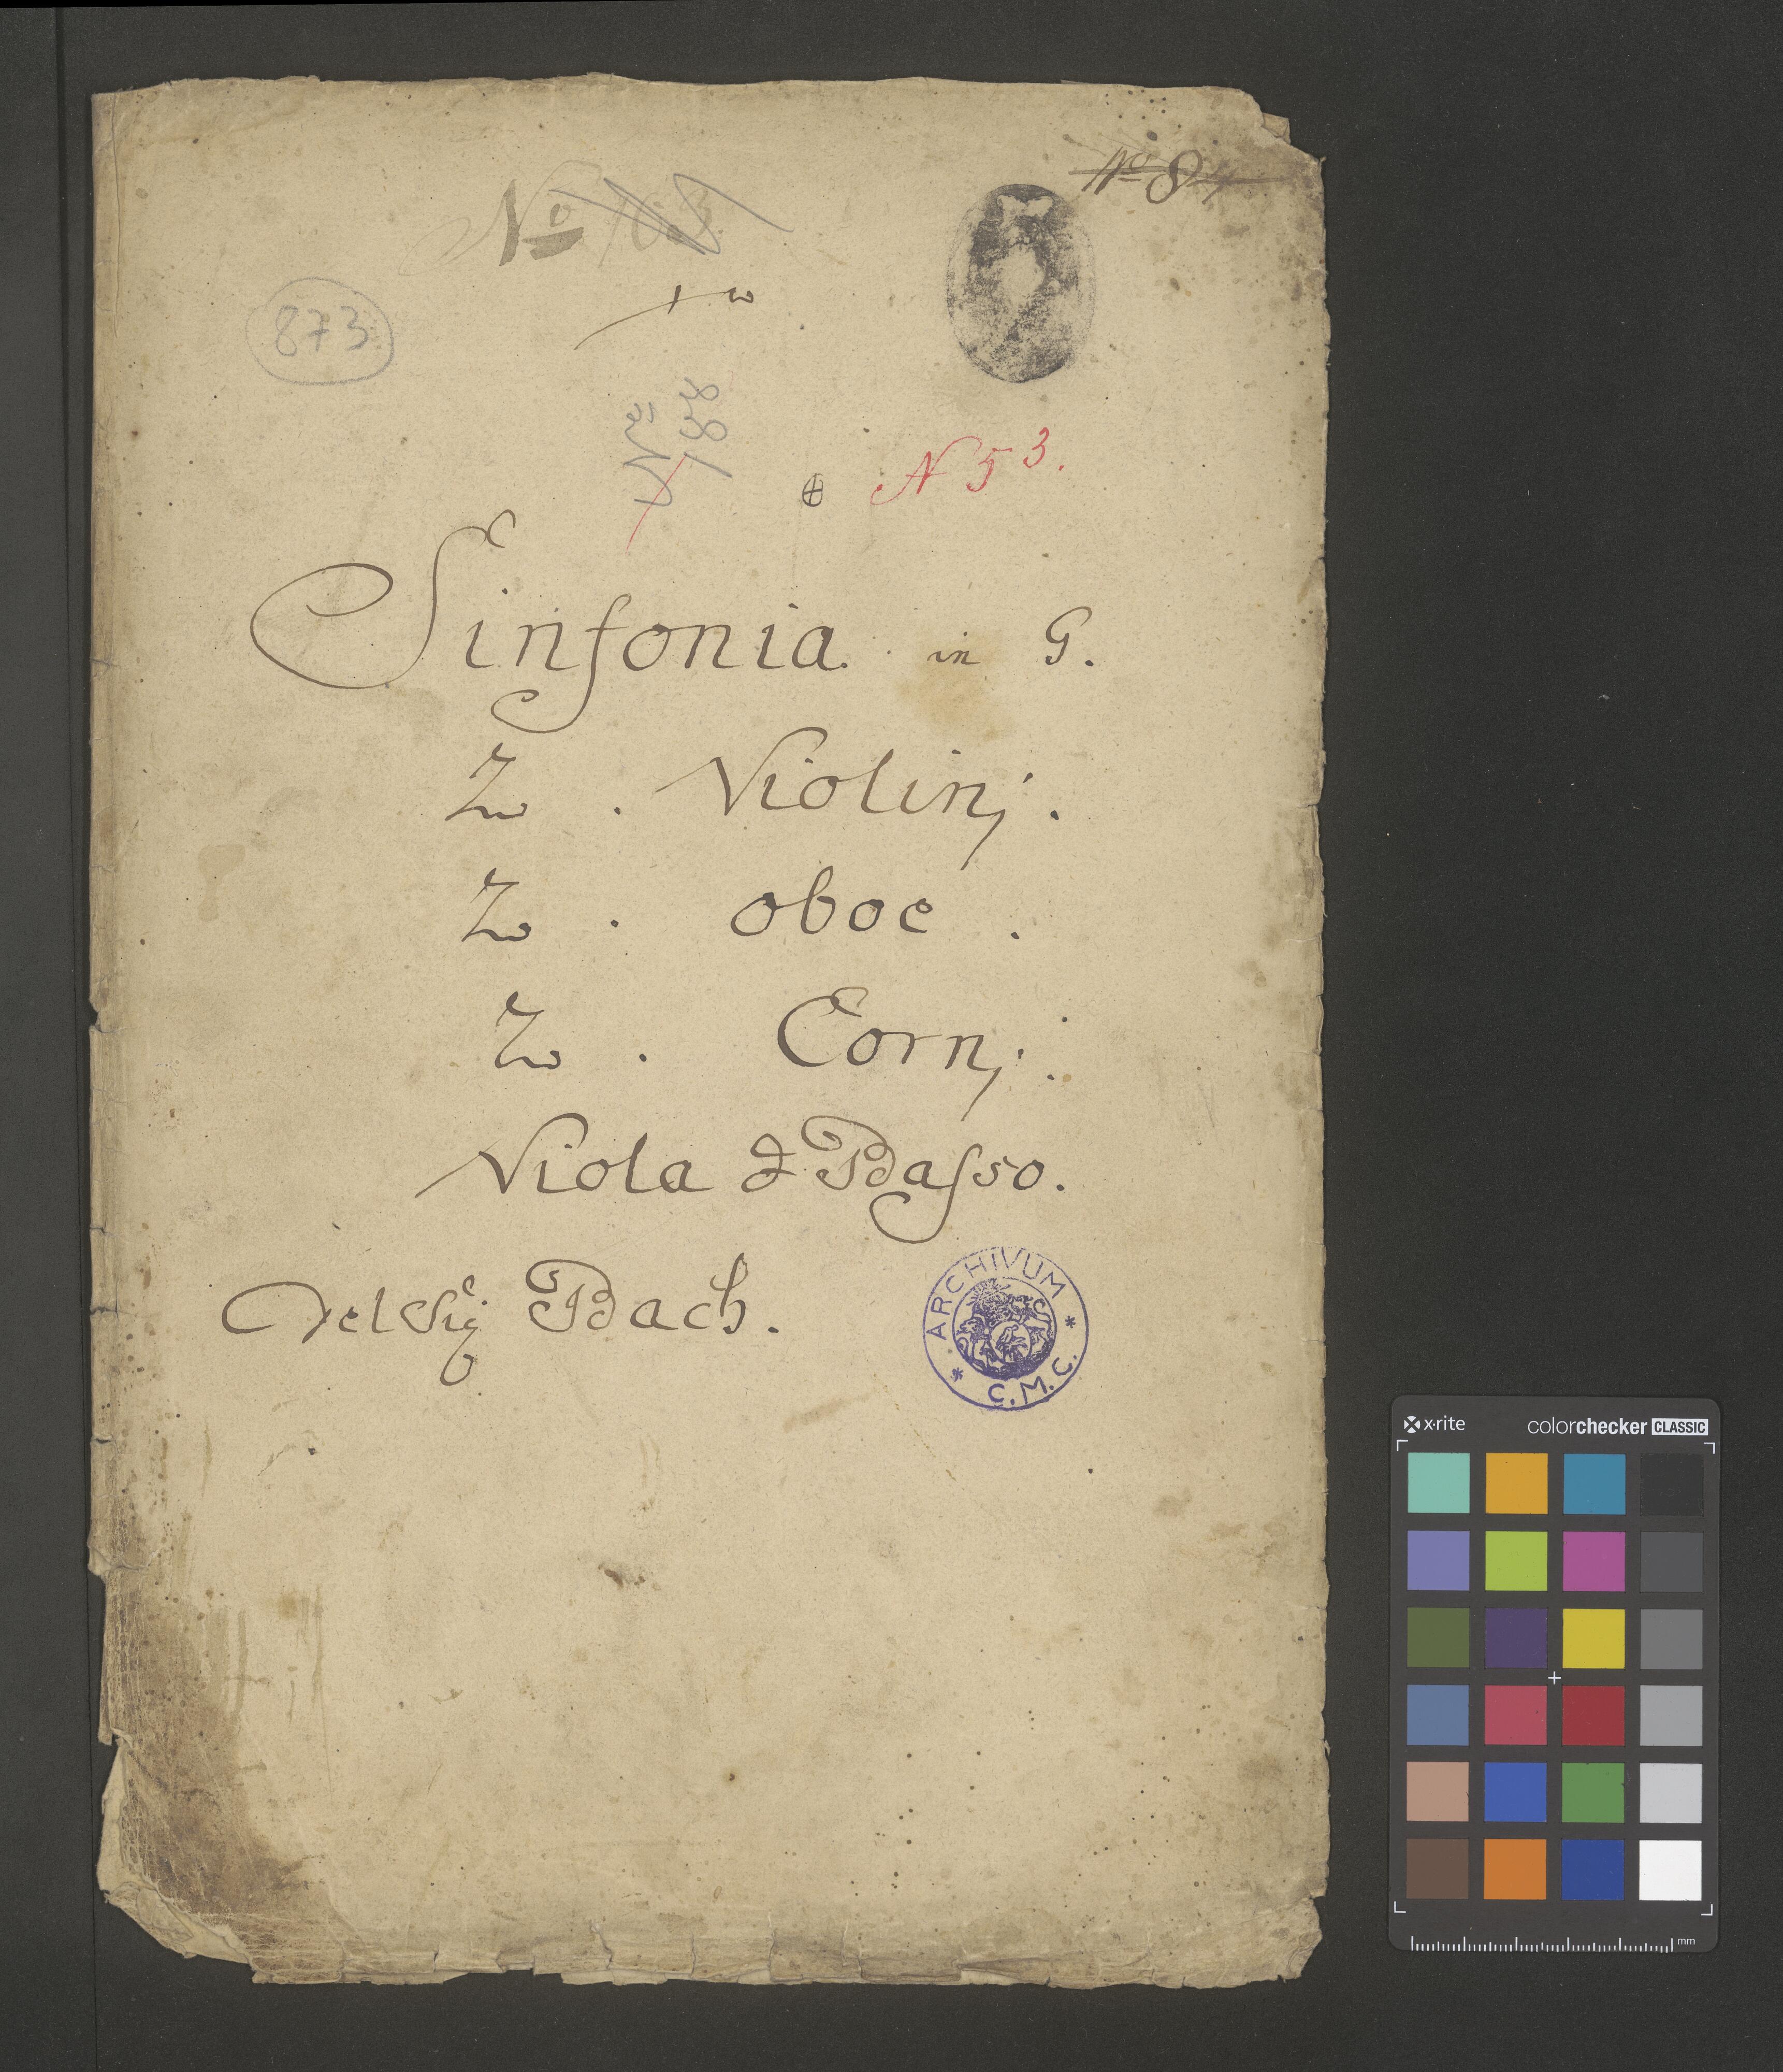 Nº 84
Nº
873
188
N 53.
Sinfonia. in G.
2 . Violinj.
2 . oboe .
2 . Cornj.
Viola & Basso.
Del Sig: Bach.
ARCHIVUM * C.M.C. *
x-rite colorchecker CLASSIC
mm